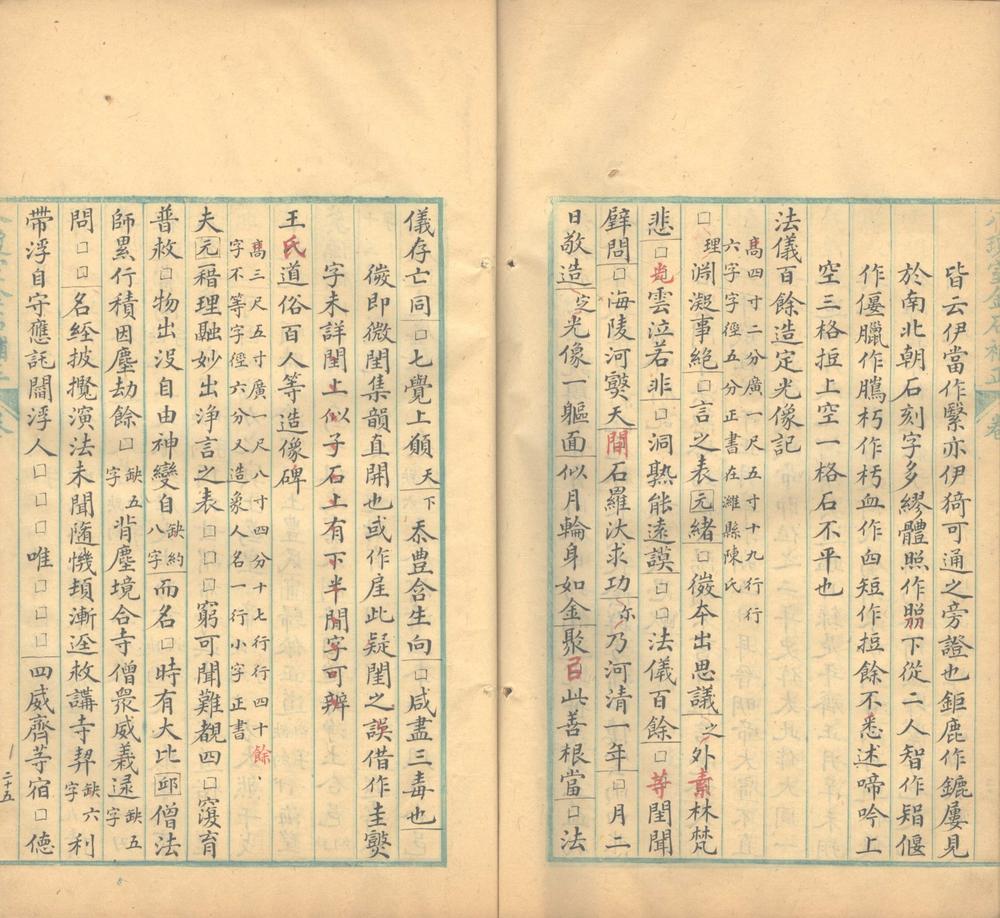 皆云伊當作繄亦伊猗可通之旁證也鉅鹿作鏕屢見
於南北朝石刻字多繆體照作䀶下從二人智作䂓偃
作僾臘作臈朽作杇血作𥁃短作挋餘不悉述啼吟上
空三格挋上空一格石不平也
法儀百餘造定光像記
高四寸二分廣一尺五寸十九行行
六字字徑五分正書在濰縣陳氏
□理淵凝事絕□言之表元緒□㣲夲出思議之外素林梵
悲□䒮雲泣若非□洞熟能遠謨□□法儀百餘□等閏聞
壁問□海陵河㢤天閒石羅汰求功尒乃河清一年□月二
日敬造定光像一軀面似月輪身如金聚㠯此善根當□法
儀存亡同□七覺上願天下忝豊含生向□咸盡三毒也
㣲即微閏集韻直開也或作㞐此疑閏之誤借作圭㢤
字未詳閏上似子石上有下半閒字可辨
王氏道俗百人等造像碑
高三尺五寸廣一尺八寸四分十七行行四十餘
字不等字徑六分又造象人名一行小字正書
夫元䅆理融妙出浄言之表□□□窮可聞難覩四□㝮育
普救□物出没自由神變自缺約八字而名□時有大比邱僧法
師累行積因塵劫餘□缺五字背塵境合寺僧衆威義逯缺五字
問□□名經披攪演法未聞隨幾頍漸逕救講寺䎋缺六字利
帶浮自守應託閻浮人□□□□唯□□□□四威齊等宿□德
二十五